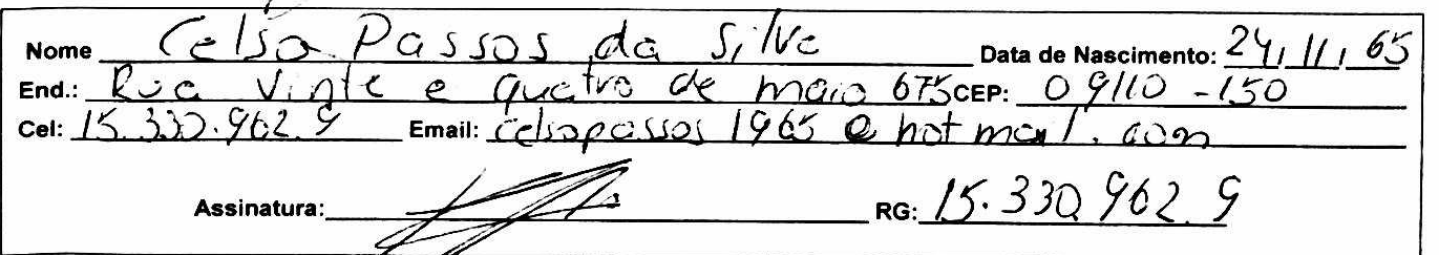 Nome Celso Passos da Silva Data de Nascimento: 24/11/65
End.: Rua Vinte e quatro de maio 675 CEP: 09110-150
Cel: 15.330.962.9 Email: celsopassos1965@hotmail.com
Assinatura: RG: 15.330.962.9